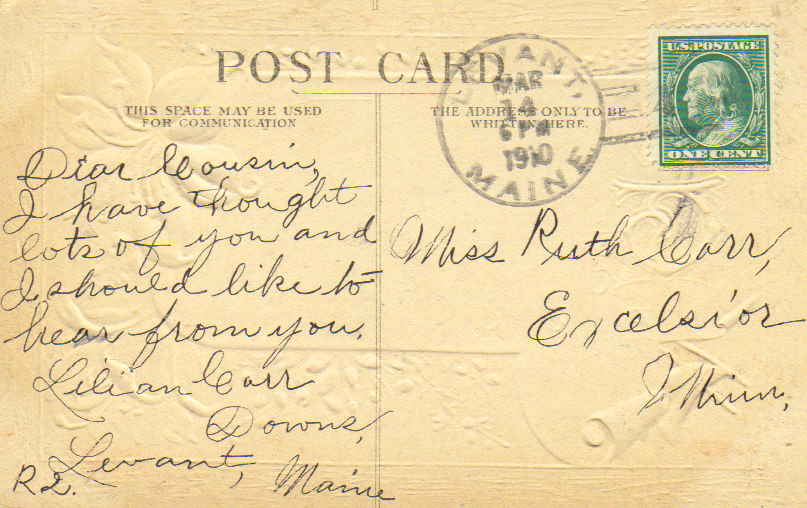 POST CARD
THIS SPACE MAY BE USED
FOR COMMUNICATION
THE ADDRESS ONLY TO BE
WRITTEN HERE.
LEVANT,
MAR
14
1910
MAINE
U.S. POSTAGE
ONE CENT
Dear Cousin,
I have thought
lots of you and
I should like to
hear from you.
Lilian Carr
Downs,
Levant,
R 2. Maine
Miss Ruth Carr,
Excelsior
Minn,